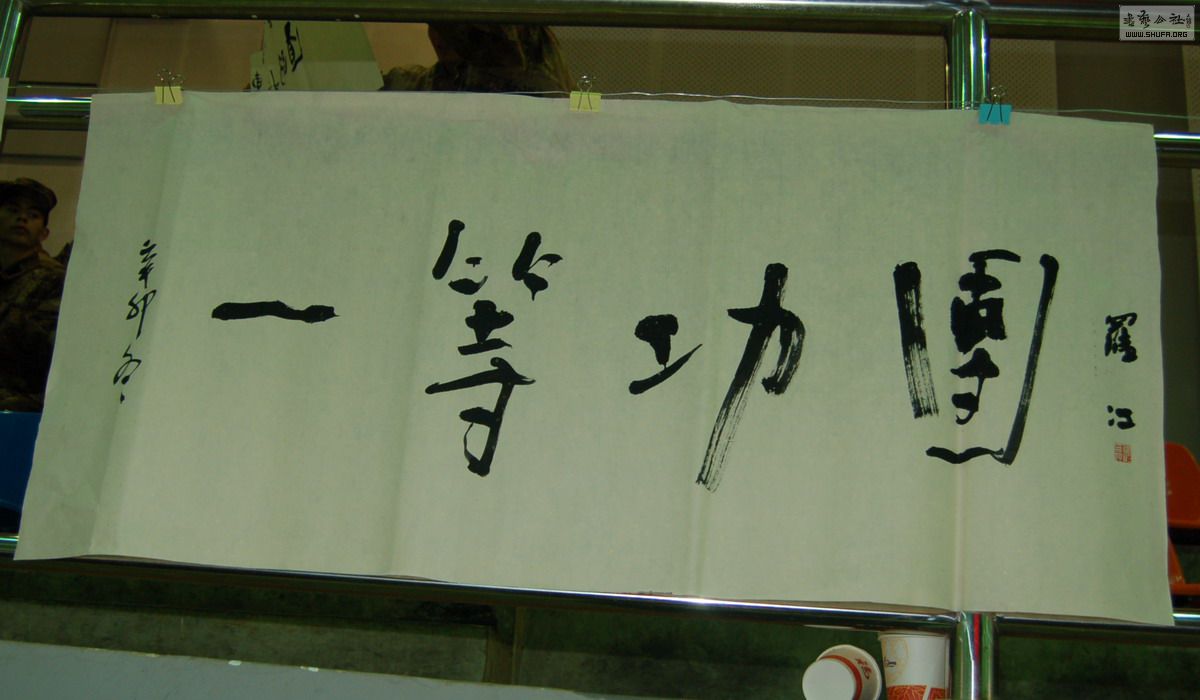 書藝公社
WWW.SHUFA.ORG
辛卯冬
一等功團
羅江